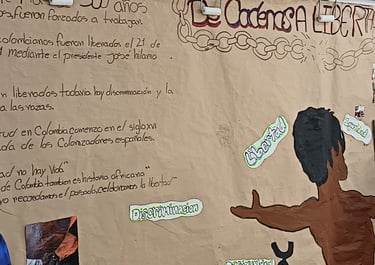 De Cadenas A LIBERTA
años
fueron forzados a trabajar.
colombianos fueron liberados el 21 de
1 mediante el presidente josé hilario
n liberados todavia hay discriminación y la
a las razas.
tud en Colombia comenzo en el siglo XVI
ada de los Colonizadores españoles.
ad no hay vida"
de Colombia tambien es historia africana"
yo recordamos el pasado, celebramos la libertad"
Libertad
Discriminacion